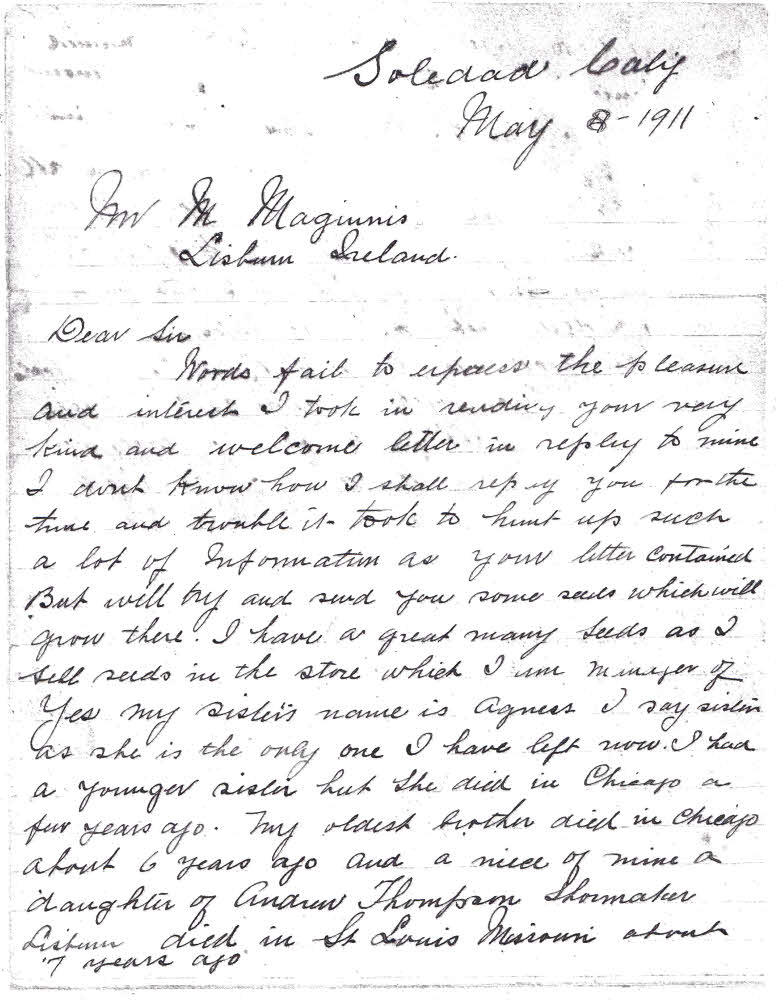 Soledad Calif
May 8 - 1911
Mr M Maginnis
Lisburn Ireland.
Dear Sir
Words fail to express the pleasure
and interest I took in reading your very
kind and welcome letter in reply to mine
I dont know how I shall repay you for the
time and trouble it took to hunt up such
a lot of Information as your letter contained
But will try and send you some seeds which will
grow there. I have a great many seeds as I
sell seeds in the store which I am manager of
Yes my sister's name is Agness I say sister
as she is the only one I have left now. I had
a younger sister but she died in Chicago a
few years ago. My oldest brother died in Chicago
about 6 years ago and a niece of mine a
daughter of Andrew Thompson Shormaker
Lisburn died in St Louis Missouri about
7 years ago